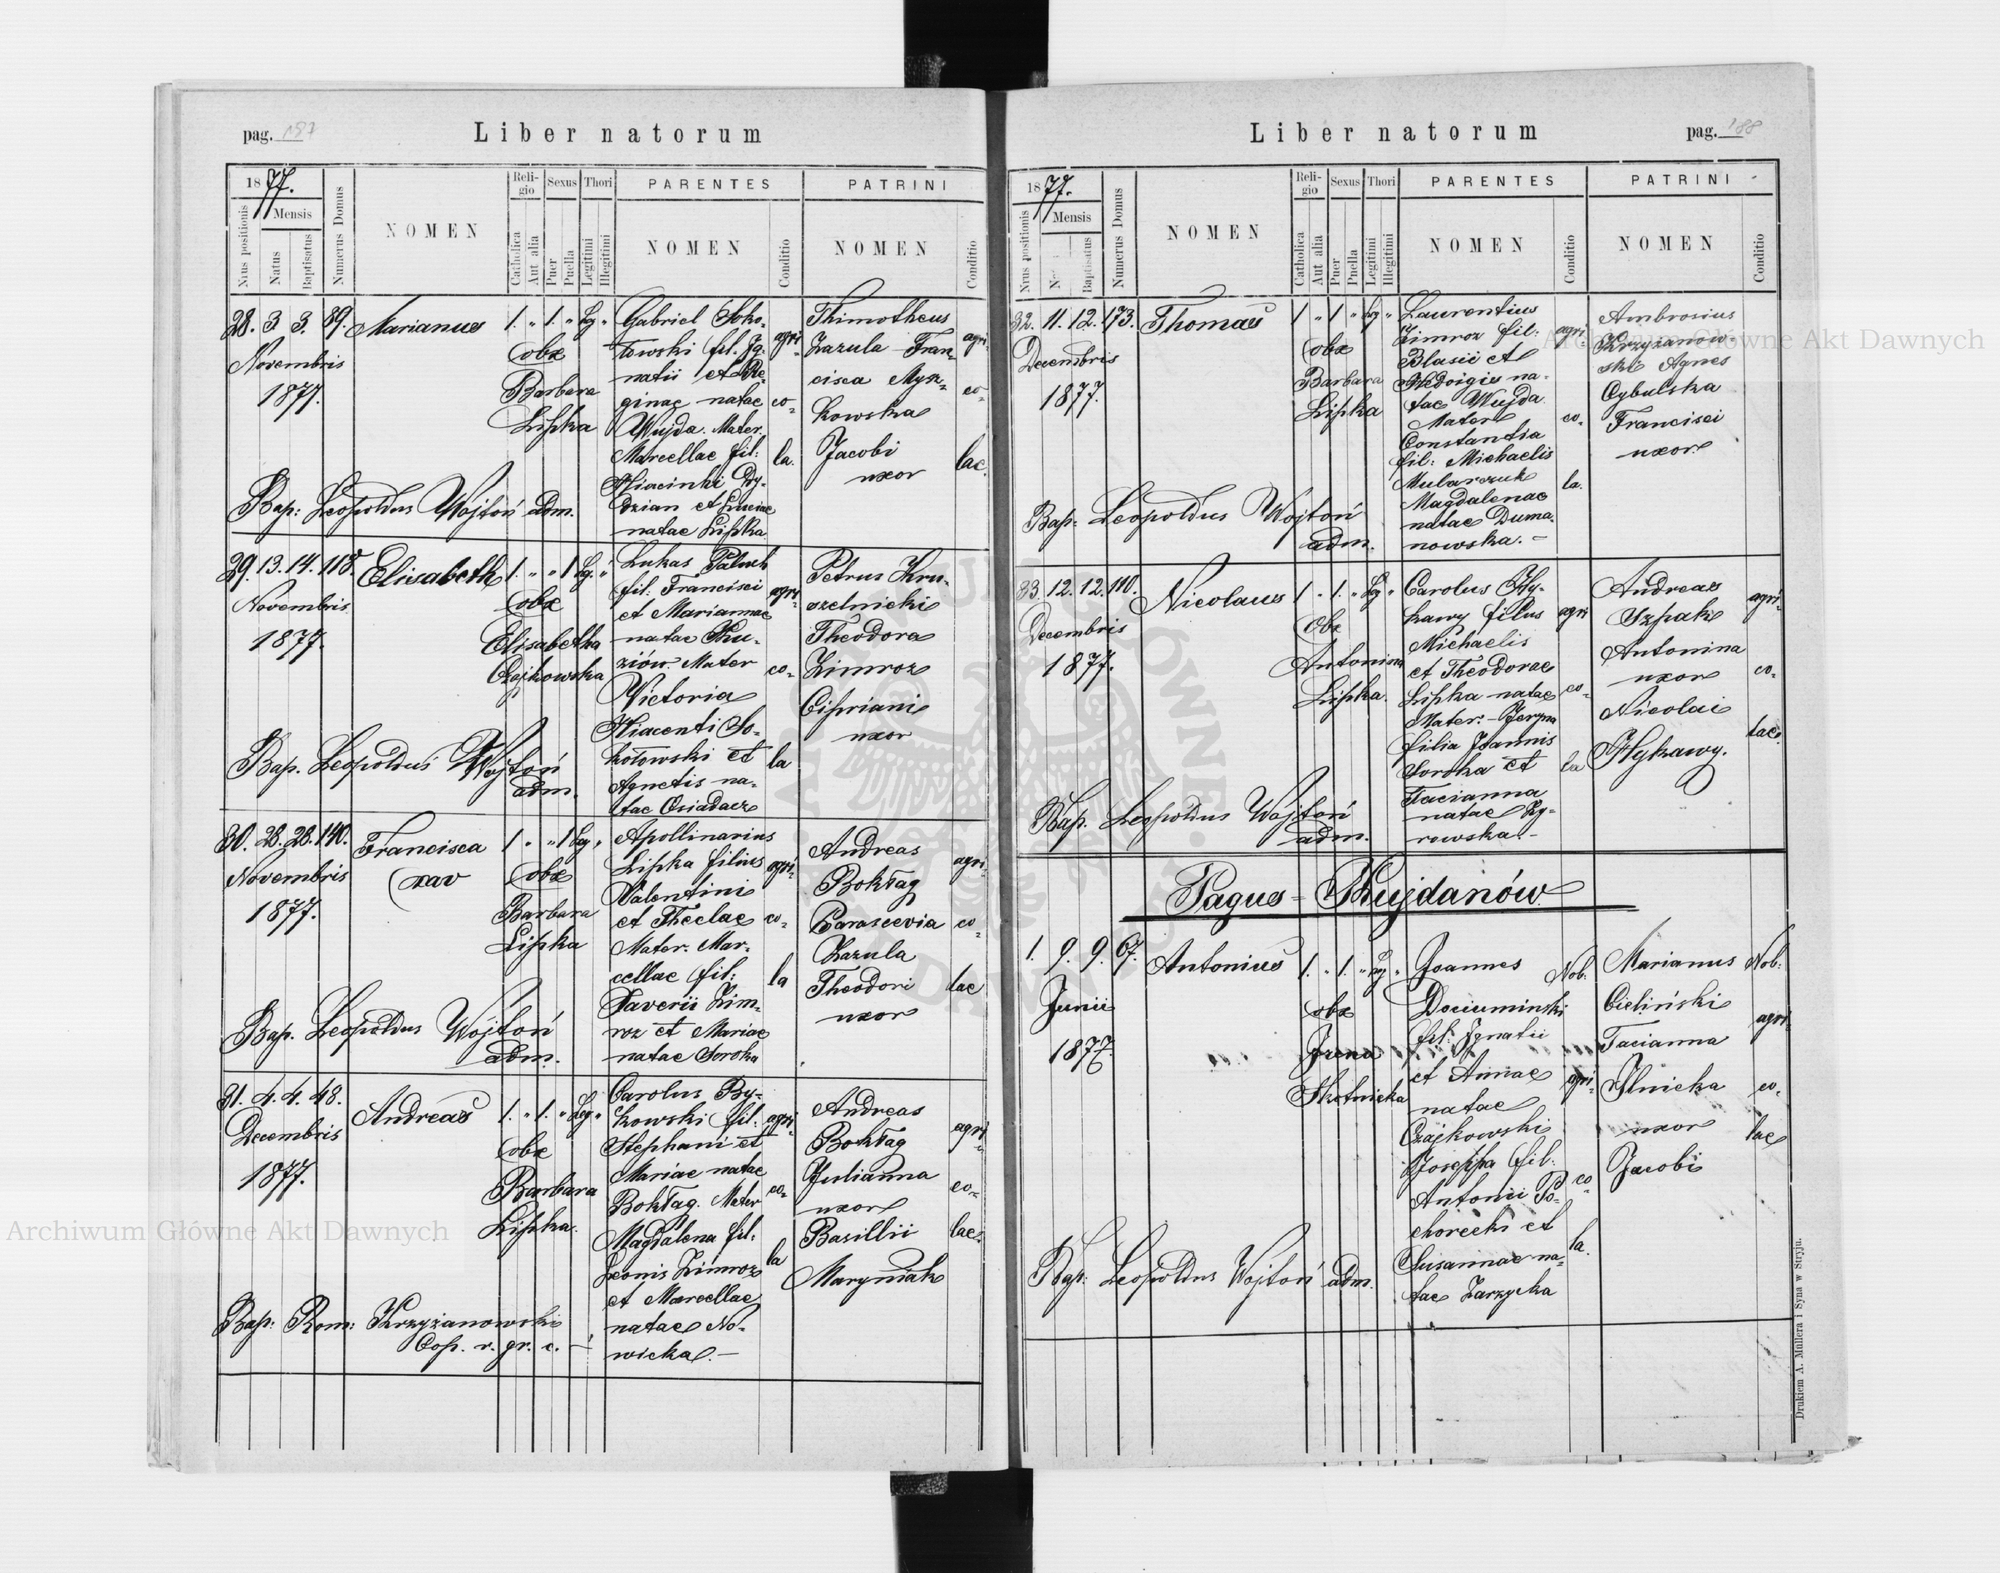 pag. 187
Liber natorum
1877.
Mensis
Nrus positionis
Natus
Baptisatus
Numerus Domus
NOMEN
Religio
Catholica
Aut alia
Sexus
Puer
Puella
Thori
Legitimi
Illegitimi
PARENTES
NOMEN
Conditio
PATRINI
NOMEN
Conditio
28. 3. 3. 89. Marianus 1. " 1. " Lg "
Novembris
1877.
obx
Barbara
Lipka
Gabriel Soko-
łowski fil. Ig-
natii et Re-
ginae natae
Wujda. Mater.
Marcellae fil:
Hiacinki Dry-
dzian et Luciae
natae Lipka
agri-
co-
la.
Thimotheus
Zazula Fran-
cisca Mysz-
kowska
Jacobi
uxor
agri-
co-
lae.
Bap: Leopoldus Wojtoń adm.
29. 13. 14. 118. Elisabeth 1. " " 1 Lg. "
Novembris
1877.
obx
Elisabetha
Czajkowska
Lukas Paluch
fil: Francisci
et Mariannae
natae Hu-
ziów. Mater
Victoria
Hiacenti So-
kołowski et
Agnetis na-
tae Osiadacz
agri-
co-
la
Petrus Kru-
szelnicki
Theodora
Zimroz
Cipriani
uxor
Bap. Leopoldus Wojtoń
adm.
30. 28. 28. 140. Francisca 1 " " 1 Leg "
xav
Novembris
1877.
obx
Barbara
Lipka
Apollinarius
Lipka filius
Valentini
et Theclae
Mater: Mar-
cellae fil:
Xaverii Zim-
roz et Mariae
natae Soroka
agri-
co-
la
Andreas
Bokłag
Parascevia
Zazula
Theodori
uxor
agri-
co-
lae
Bap. Leopoldus Wojtoń
adm.
31. 4. 4. 48. Andreas 1. " 1. " Leg "
Decembris
1877.
obx
Barbara
Lipka.
Carolus By-
kowski fil:
Stephani et
Mariae natae
Bokłag. Mater
Magdalena fil:
Leonis Zimroz
et Marcellae
natae No-
wicka.-
agri-
co-
la
Andreas
Bokłag
Julianna
uxor
Basillii
Maryniak
agri-
co-
lae.
Bap: Rom: Krzyżanowski
Cop. r. gr. c. -
Liber natorum
pag. 188
1877.
Mensis
Nrus positionis
Baptisatus
Numerus Domus
NOMEN
Religio
Catholica
Aut alia
Sexus
Puer
Puella
Thori
Legitimi
Illegitimi
PARENTES
NOMEN
Conditio
PATRINI
NOMEN
Conditio
32. 11. 12. 173. Thomas 1 " 1 " Lg "
Decembris
1877.
obx
Barbara
Lipka
Laurentius
Zimroz fil:
Blasii et
Hedvigis na-
tae Wujda
Mater
Constantia
fil: Michaelis
Mularczuk
Magdalenae
natae Duma-
nowska. -
agri-
co-
la.
Ambrosius
Krzyżanow-
ski Agnes
Cybulska
Francisci
uxor
Bap: Leopoldus Wojtoń
adm.
33. 12. 12. 110. Nicolaus 1 " 1. " Lg "
Decembris
1877.
obx
Antonina
Lipka.
Carolus Hy-
kawy filius
Michaelis
et Theodorae
Lipka natae
Mater: -
filia Joannis
Soroka et
Tacianna
natae Ry-
rowska. -
agri
co-
la
Andreas
Szpak
Antonina
uxor
Nicolai
Hykawy.
agri-
co-
lae.
Bap. Leopoldus Wojtoń
adm.
Pagus - Hujdanów
1. 9. 9. 67. Antonius 1. " 1. " Lg "
Junii
1877.
obx
Irena
Skotnicka
Joannes
Dociuminski
fil: Ignatii
et Annae
natae
Czajkowski
Josephа fil:
Antonii Po-
chorecki et
Susannae na-
tae Zarzycka
Nob:
agri-
co-
la.
Marianus
Cieliński
Tacianna
Ilnicka
uxor
Jacobi
Nob:
agri-
co-
lae
Bap: Leopoldus Wojtoń adm.
Drukiem A. Müllera i Syna w Stryju.
Archiwum Główne Akt Dawnych
Archiwum Główne Akt Dawnych